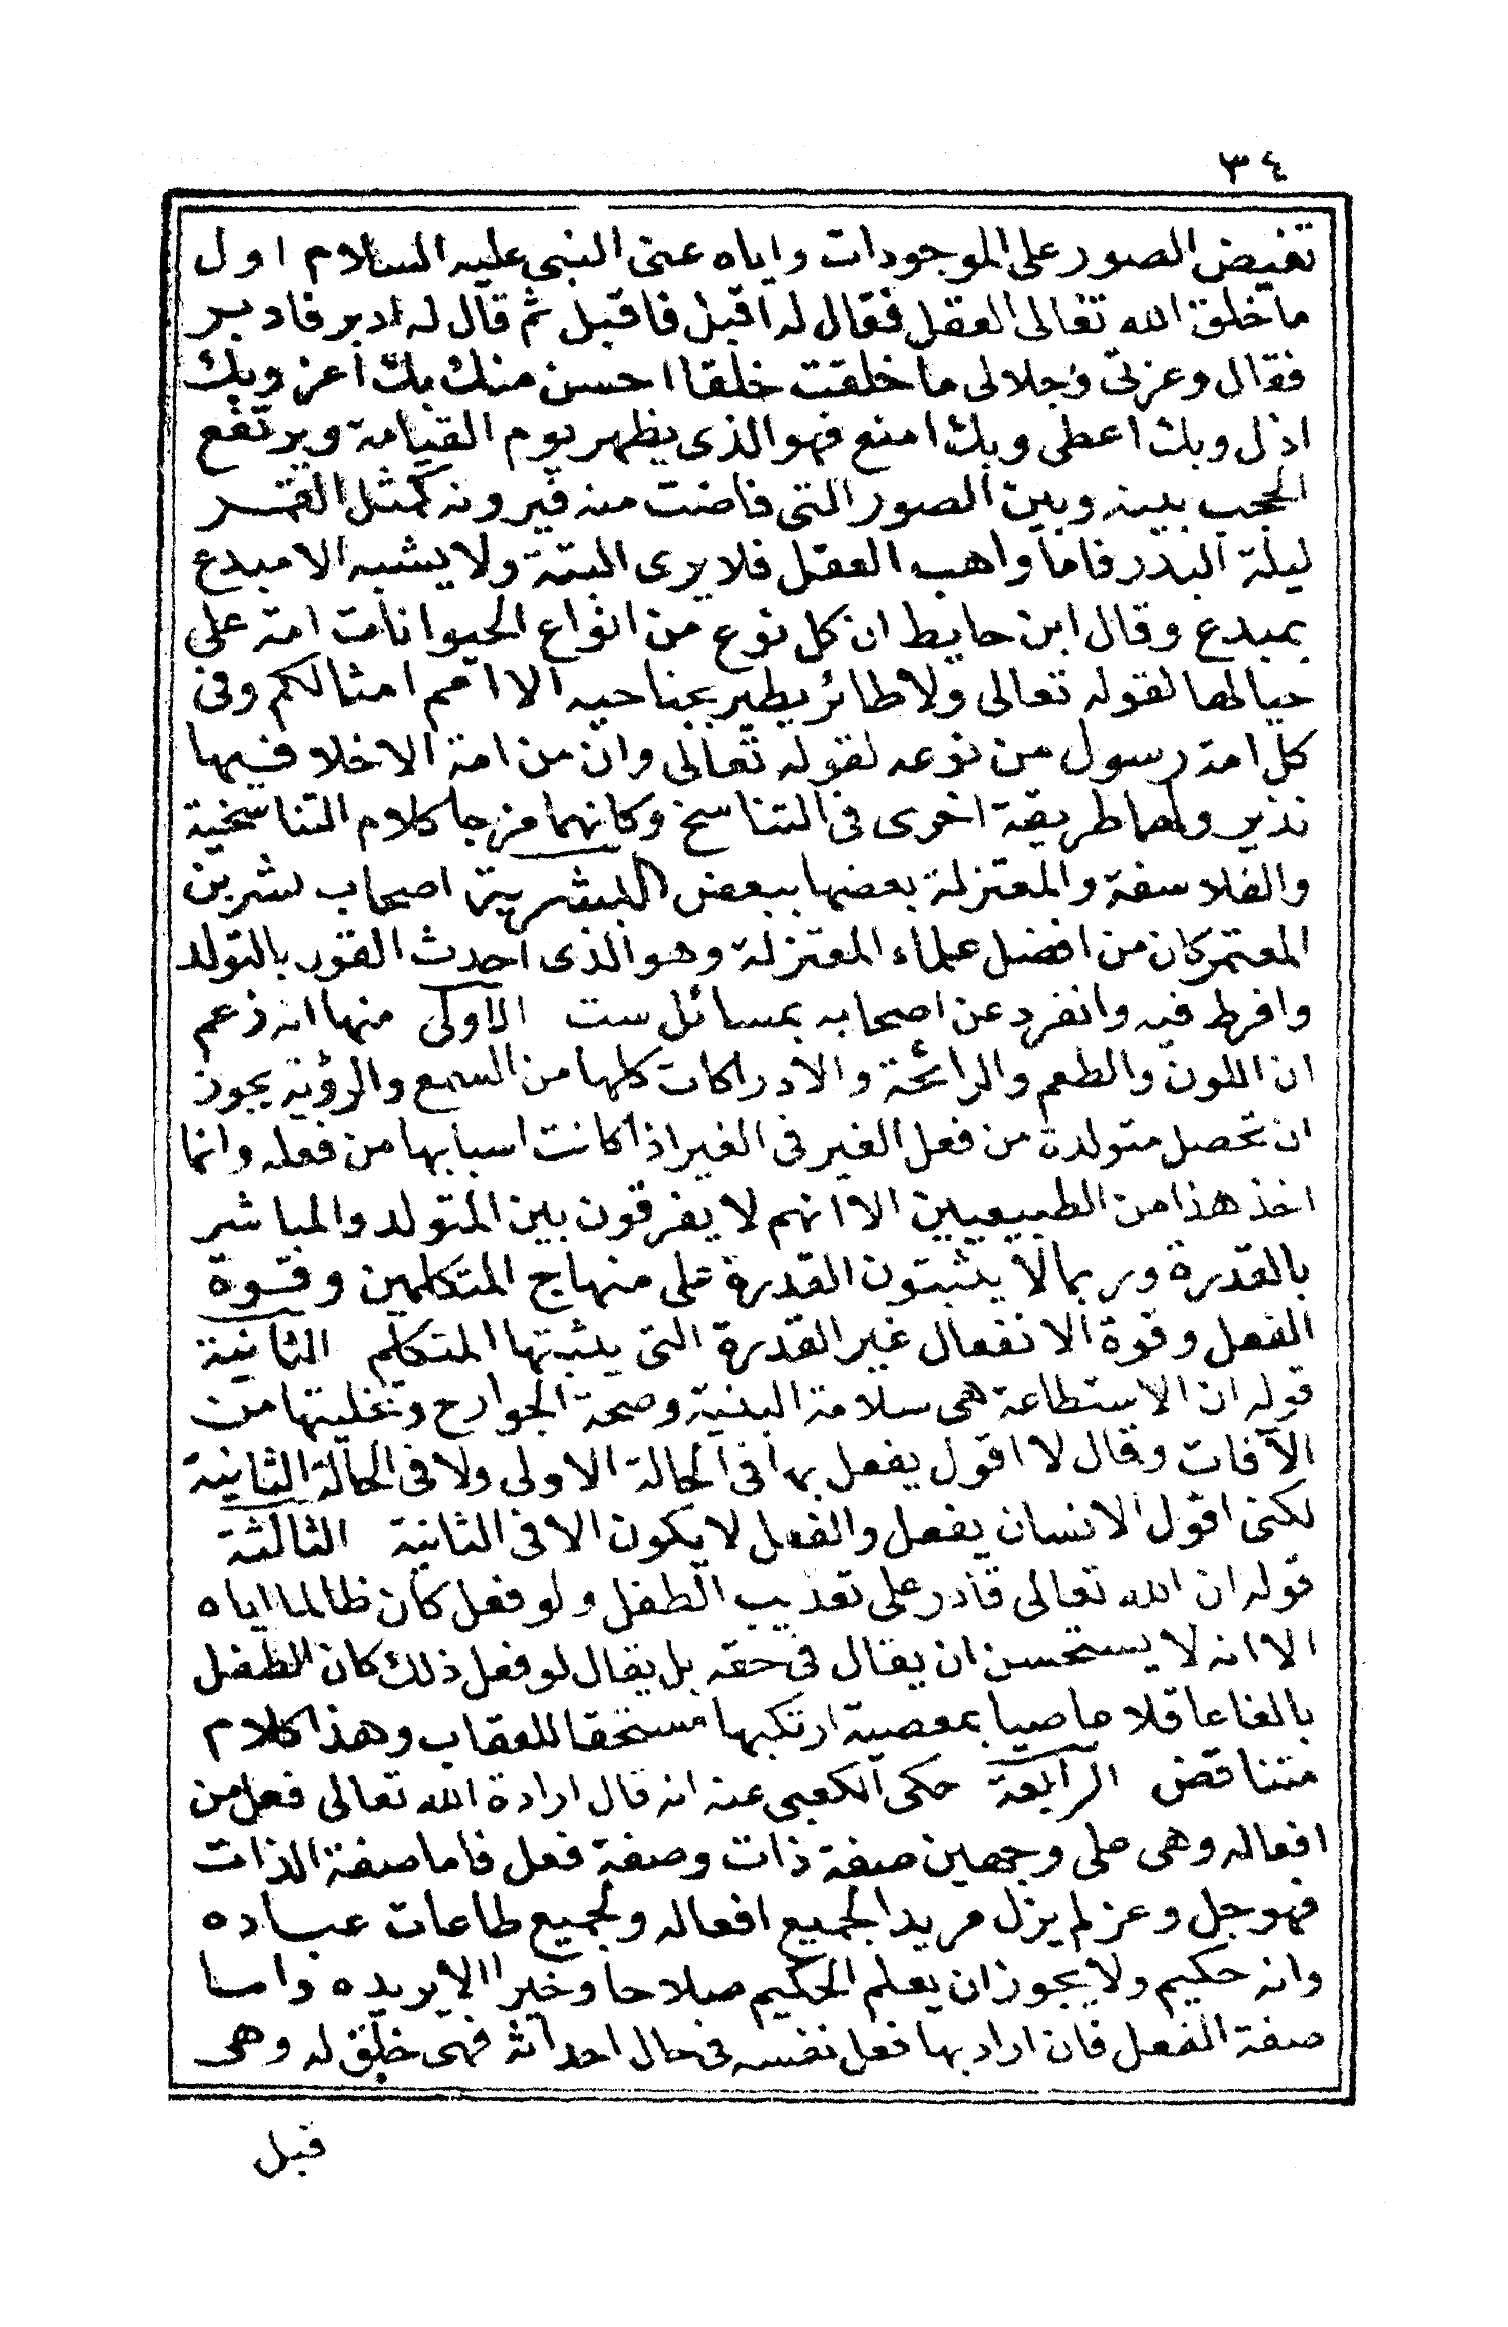 ٣٤
تفيض الصور على الموجودات واياه عنى النبى عليه السلام اول
ما خلق الله تعالى العقل فقال له اقبل فاقبل ثم قال له ادبر فادبر
فقال وعزتى وجلالى ما خلقت خلقا احسن منك بك اعز وبك
اذل وبك اعطى وبك امنع فهو الذى يظهر يوم القيامة ويرتفع
الحجب بينه وبين الصور التى فاضت منه فيرونه كمثل القمر
ليلة البدر فاما واهب العقل فلا يرى البتة ولا يشبه الا مبدع
بمبدع وقال ابن حايط ان كل نوع من انواع الحيوانات امة على
حيالها لقوله تعالى ولا طائر يطير بجناحيه الا امم امثالكم وفى
كل امة رسول من نوعه لقوله تعالى وان من امة الا خلا فيها
نذير ولهما طريقة اخرى فى التناسخ وكانهما مزجا كلام التناسخية
والفلاسفة والمعتزلة بعضها ببعض البشرية اصحاب بشر بن
المعتمر كان من افضل علماء المعتزلة وهو الذى احدث القول بالتولد
وافرط فيه وانفرد عن اصحابه بمسائل ست الاولى منها انه زعم
ان اللون والطعم والرائحة والادراكات كلها من السمع والرؤية يجوز
ان تحصل متولدة من فعل الغير فى الغير اذا كانت اسبابها من فعله وانما
اخذ هذا من الطبيعيين الا انهم لا يفرقون بين المتولد والمباشر
بالقدرة وربما لا يثبتون القدرة على منهاج المتكلمين وقوة
الفعل وقوة الانفعال غير القدرة التى يثبتها المتكلم الثانية
قوله ان الاستطاعة هى سلامة البنية وصحة الجوارح وتخليتها من
الآفات وقال لا اقول يفعل بها فى الحالة الاولى ولا فى الحالة الثانية
لكنى اقول الانسان يفعل والفعل لا يكون الا فى الثانية الثالثة
قوله ان الله تعالى قادر على تعذيب الطفل ولو فعل كان ظالما اياه
الا انه لا يستحسن ان يقال فى حقه بل يقال لو فعل ذلك كان الطفل
بالغا عاقلا عاصيا بمعصية ارتكبها مستحقا للعقاب وهذا كلام
متناقض الرابعة حكى الكعبى عنه انه قال ارادة الله تعالى فعل من
افعاله وهى على وجهين صفة ذات وصفة فعل فاما صفة الذات
فهو جل وعز لم يزل مريدا لجميع افعاله ولجميع طاعات عباده
وانه حكيم ولا يجوز ان يعلم الحكيم صلاحا وخيرا الا يريده واما
صفة الفعل فان اراد بها فعل نفسه فى حال احداثه فهى خلق له وهى
قبل